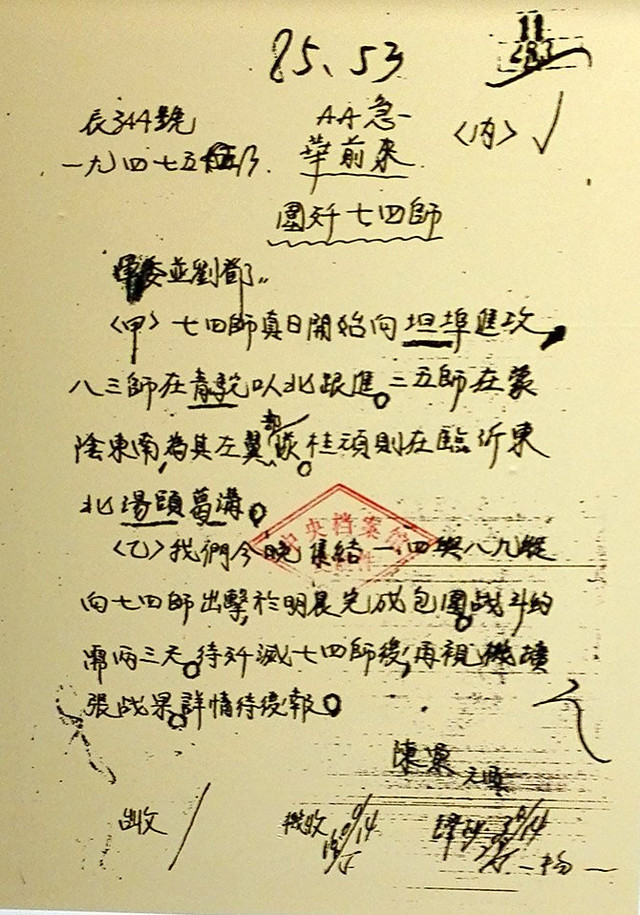 85、53
長344號
AA急
〈內〉
一九四七五
華前來
圍歼七四師
軍委並劉鄧：
〈甲〉七四師真日開始向坦埠進攻，
八三師在青駝以北跟進。二五師在蒙
陰東南，為其左翼部隊。桂頑則在臨沂東
北湯頭葛溝。
〈乙〉我們今晚集結一、四與八九縱
向七四師出擊，於明晨完成包圍。战斗約
需兩三天。待歼滅七四師後，再視機擴
張战果。詳情待後報。
陳粟
中央档案館
出收
機收
14
譯
14